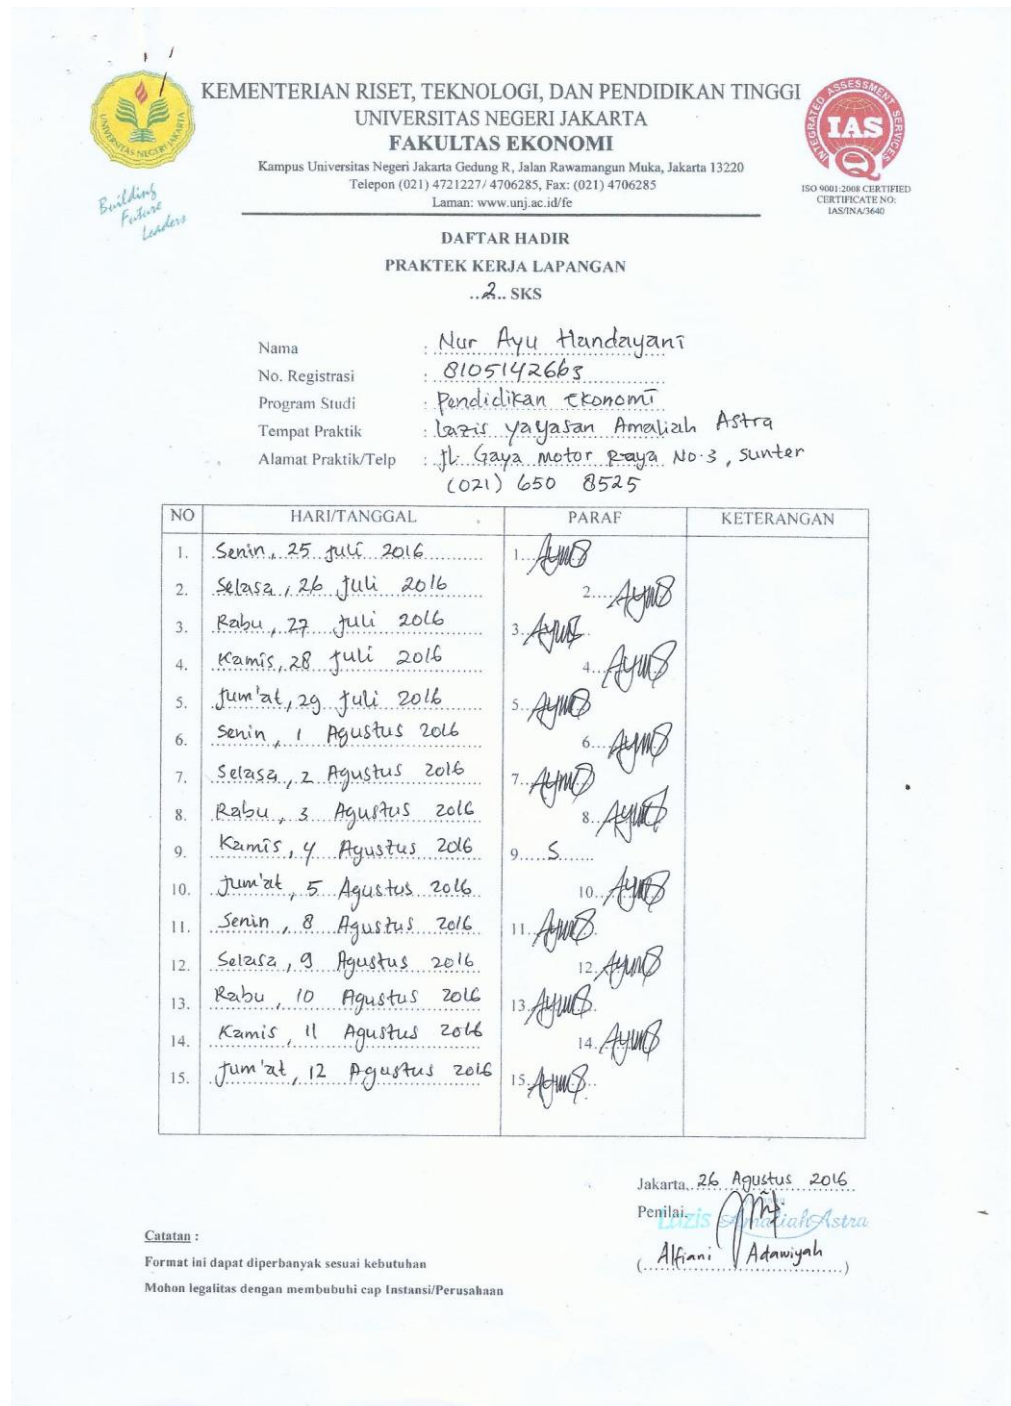 KEMENTERIAN RISET, TEKNOLOGI, DAN PENDIDIKAN TINGGI
UNIVERSITAS NEGERI JAKARTA
FAKULTAS EKONOMI
Kampus Universitas Negeri Jakarta Gedung R, Jalan Rawamangun Muka, Jakarta 13220
Telepon (021) 4721227/ 4706285, Fax: (021) 4706285
Laman: www.unj.ac.id/fe
UNIVERSITAS NEGERI JAKARTA
Building
Future
Leaders
INTEGRATED ASSESSMENT SERVICES
IAS
ISO 9001:2008 CERTIFIED
CERTIFICATE NO:
IAS/INA/3640
DAFTAR HADIR
PRAKTEK KERJA LAPANGAN
..2.. SKS
Nama : Nur Ayu Handayani
No. Registrasi : 8105142663
Program Studi : Pendidikan Ekonomi
Tempat Praktik : Lazis Yayasan Amaliah Astra
Alamat Praktik/Telp : Jl. Gaya Motor Raya No.3, Sunter
(021) 650 8525
NO HARI/TANGGAL PARAF KETERANGAN
1. Senin, 25 Juli 2016 1.
2. Selasa, 26 Juli 2016 2.
3. Rabu, 27 Juli 2016 3.
4. Kamis, 28 Juli 2016 4.
5. Jum'at, 29 Juli 2016 5.
6. Senin, 1 Agustus 2016 6.
7. Selasa, 2 Agustus 2016 7.
8. Rabu, 3 Agustus 2016 8.
9. Kamis, 4 Agustus 2016 9. S
10. Jum'at, 5 Agustus 2016 10.
11. Senin, 8 Agustus 2016 11.
12. Selasa, 9 Agustus 2016 12.
13. Rabu, 10 Agustus 2016 13.
14. Kamis, 11 Agustus 2016 14.
15. Jum'at, 12 Agustus 2016 15.
Jakarta, 26 Agustus 2016
Penilai,
Lazis Amaliah Astra
(Alfiani Adawiyah)
Catatan :
Format ini dapat diperbanyak sesuai kebutuhan
Mohon legalitas dengan membubuhi cap Instansi/Perusahaan